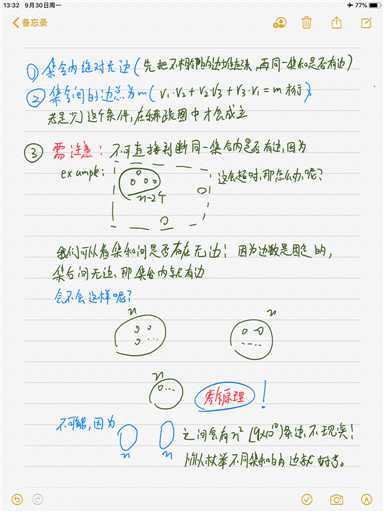 13:32 9月30日周一
77%
备忘录
① 集合内绝对无边(先把不同的边连起来,再同一集合是否有边)
② 集合间的边总为m(V₁·V₂+V₂·V₃+V₃·V₁=m 才行)
这个条件,在 图中才会成立
③ 需注意:不可直接判断同一集合内是否有边,因为
example:
n-2个
这么超时,那怎么办呢?
我们可以看集合间是否存在无边!因为边数是固定的,
集合间无边,那集合内就有边
会不会这样呢?
n
n
n
原理!
不可能,因为
n
n
之间会有n² 条边,不现实!
所以枚举不同集合的边 好了。